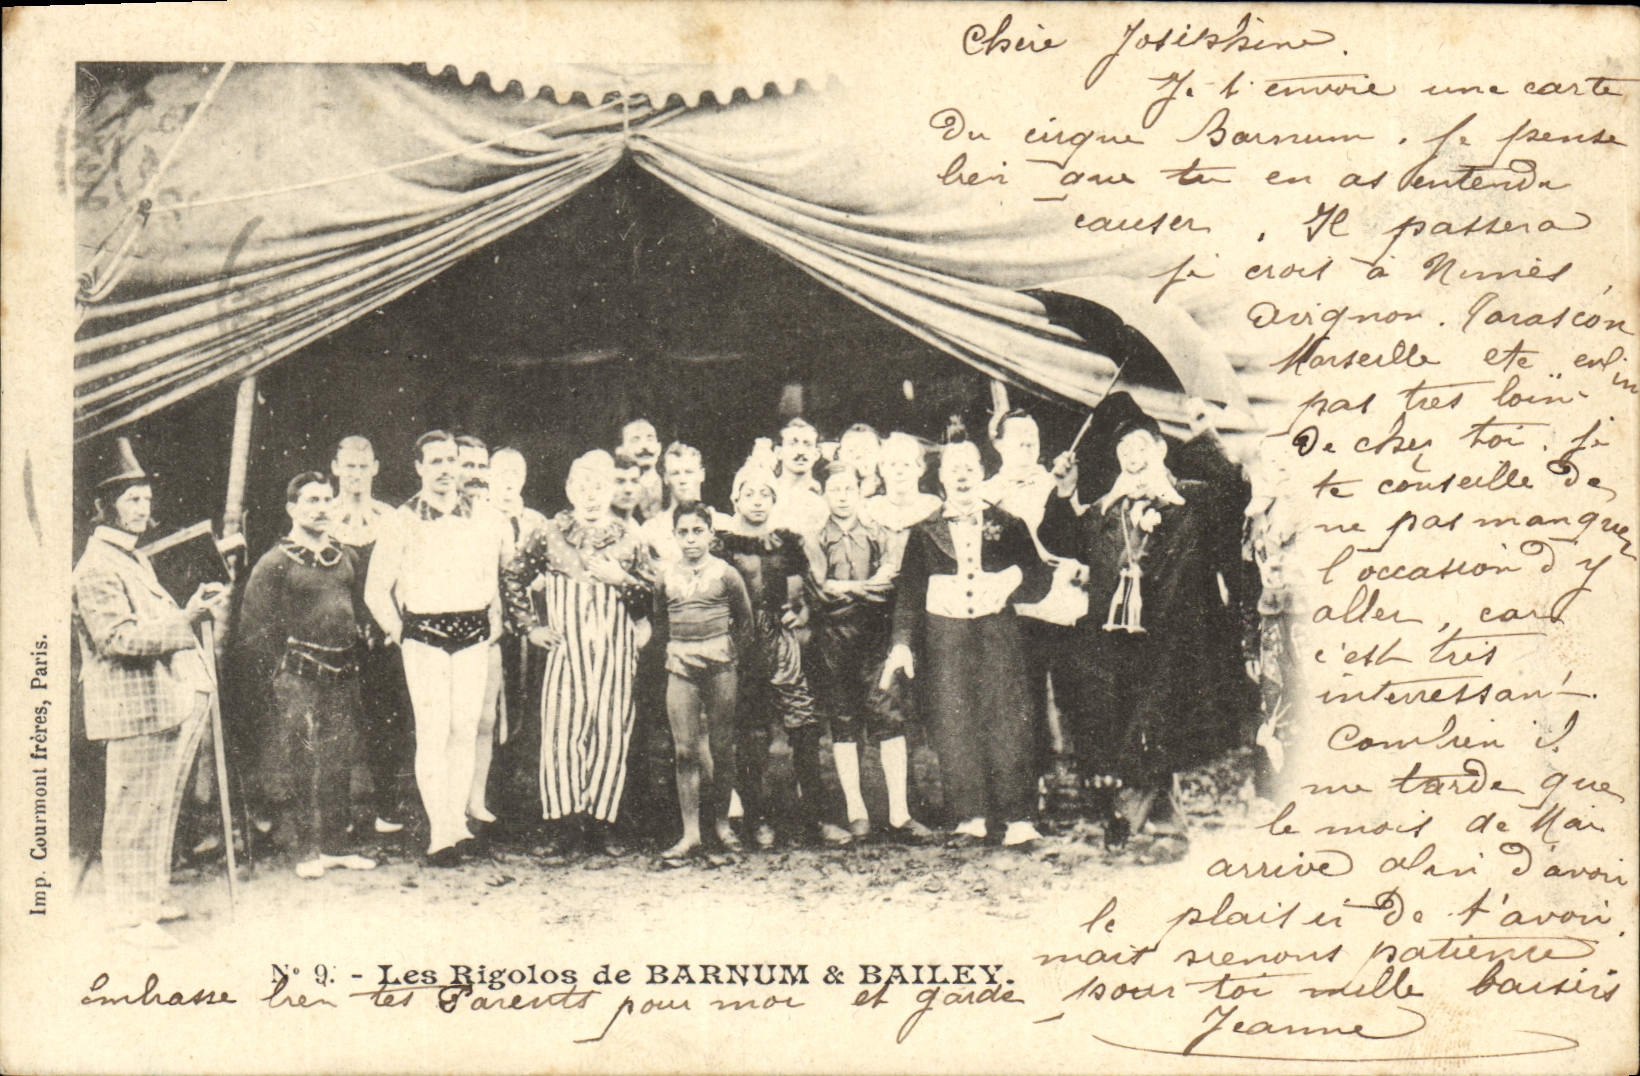 Chère Josephine.
Je t'envoie une carte
Du cirque Barnum. Je pense
bien que tu en as entendu
causer. Il passera
je crois à Nimes
Avignon. Tarascon
Marseille etc enfin
pas tres loin
De chez toi. Je
te conseille De
ne pas manquer
l'occasion d'y
aller, car
c'est très
interressant.
Combien il
me tarde que
le mois de Mai
arrive afin d'avoir
le plaisir De t'avoir,
mais prenons patience
Imp. Courmont frères, Paris.
N° 9. - Les Rigolos de BARNUM & BAILEY.
Embrasse bien tes Parents pour moi et garde pour toi mille baisers
Jeanne